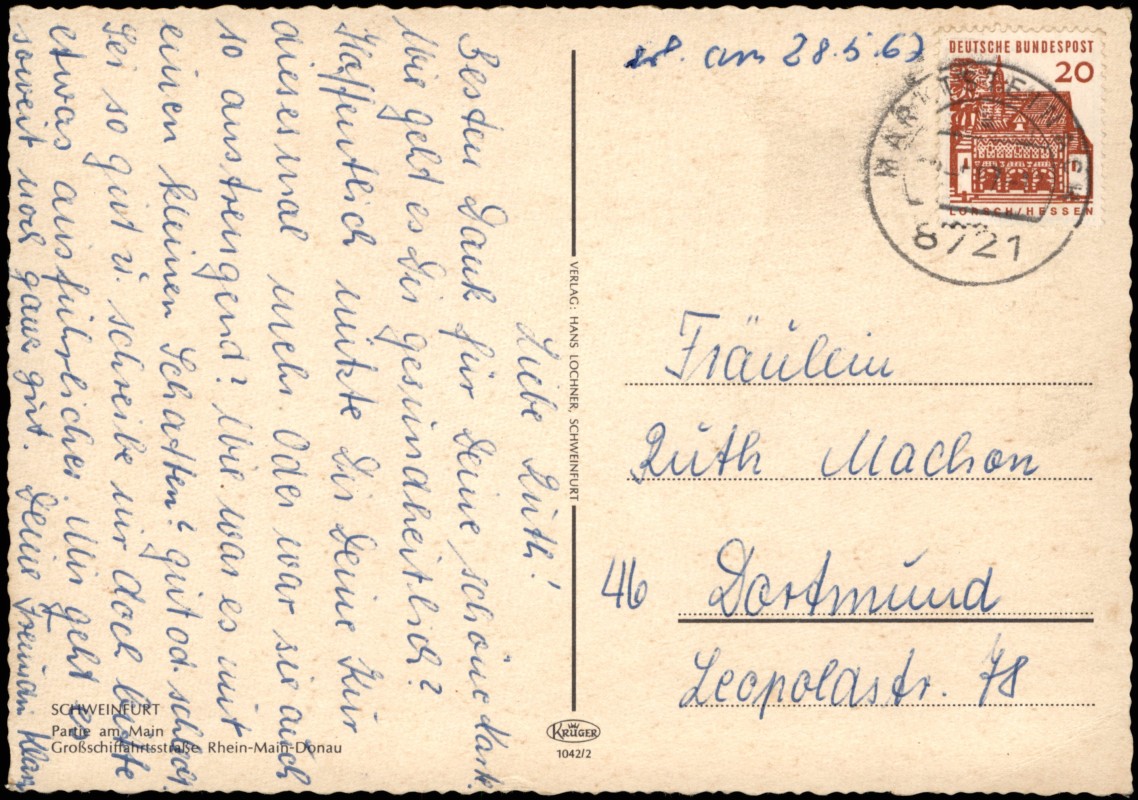 Liebe Ruth!
Besten Dank für Deine schöne Kart.
Wie geht es Dir gesundheitlich?
Hoffentlich nützte Dir Deine Kur
diesesmal mehr Oder war sie auch
so anstrengend? Wie was es mit
einen kleinen Schatten? gut od. schlecht.
Sei so gut u. schreibe mir doch bitte
etwas ausführlicher. Mir geht es
soweit noch ganz gut. Deine Freundin
SCHWEINFURT
Partie am Main
Großschiffahrtsstraße Rhein-Main-Donau
VERLAG: HANS LOCHNER, SCHWEINFURT
KRÜGER
1042/2
am 28.5.67
DEUTSCHE BUNDESPOST
20
LORSCH/HESSEN
8721
Fräulein
Ruth Machon
46 Dortmund
Leopoldstr. 78